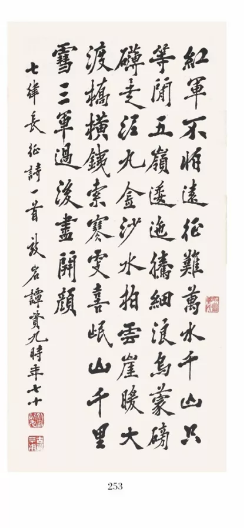 紅軍不怕遠征難萬水千山只
等閒五嶺逶迤騰細浪烏蒙磅
礴走泥丸金沙水拍雲崖暖大
渡橋橫鐵索寒更喜岷山千里
雪三軍過後盡開顏
七律長征詩一首 譚賞九時年七十
253